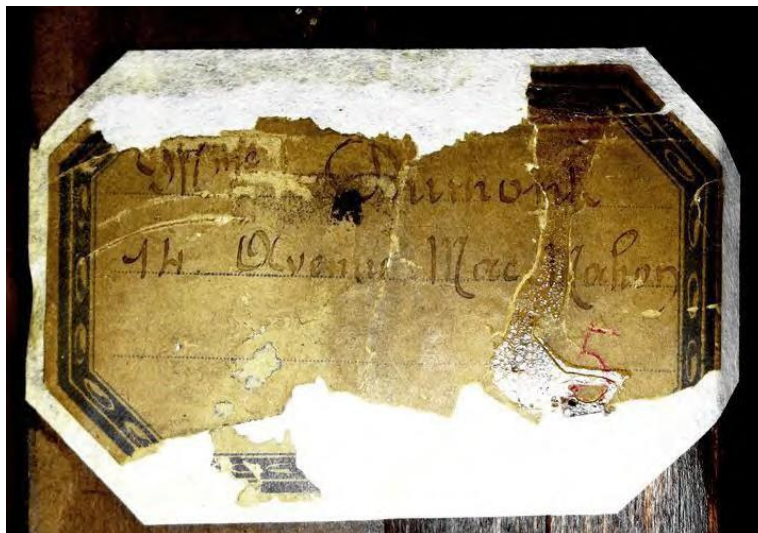 Mme Dumont
14 Avenue Mac Mahon
5